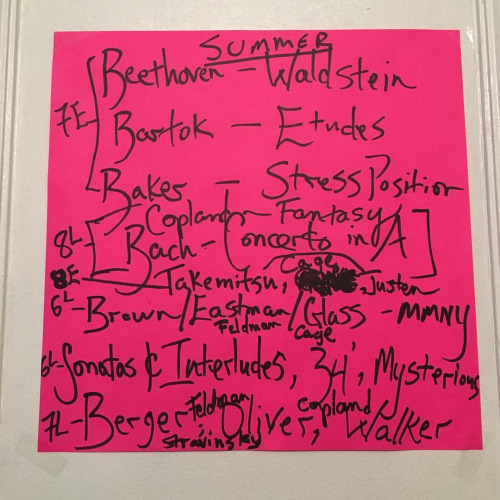 SUMMER
7E Beethoven - Waldstein
Bartok - Etudes
Baker - Stress Position
Copland - Fantasy
8L- [Bach - Concerto in A]
Cage
8E Takemitsu, , Justen
6L- Brown/Eastman/Glass - MMNY
Feldman Cage
6L- Sonatas & Interludes, 34', Mysterious
Feldman Copland
7L- Berger, Oliver, Walker
Stravinsky